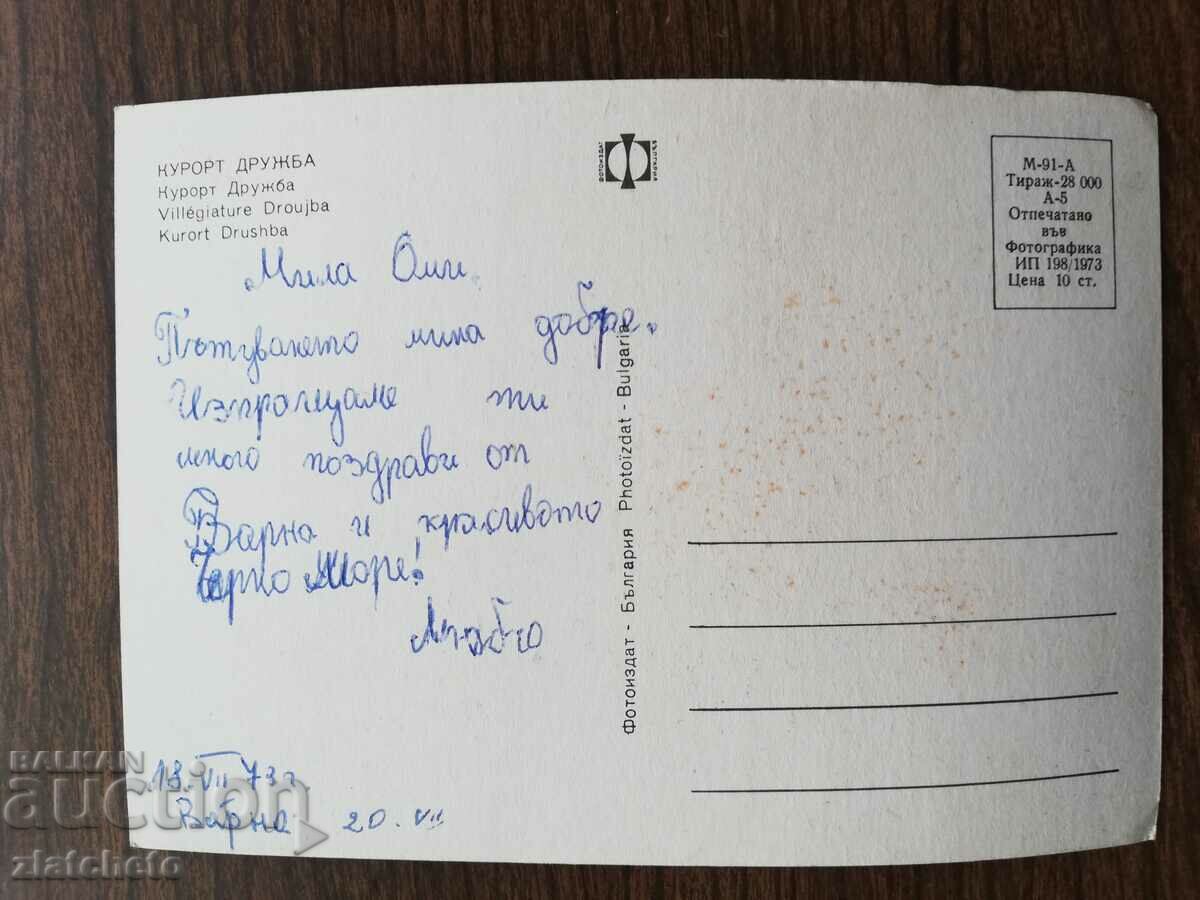 КУРОРТ ДРУЖБА
Курорт Дружба
Villégiature Droujba
Kurort Drushba
ФОТОИЗДАТ БЪЛГАРИЯ
М-91-А
Тираж-28 000
А-5
Отпечатано
във
Фотографика
ИП 198/1973
Цена 10 ст.
Мила
Пътуването мина добре.
Изпращаме ти
много поздрави от
Варна и красивото
Черно Море!
Любчо
Фотоиздат - България Photoïzdat - Bulgaria
18.VII 73г.
Варна 20.VII
BALKAN
auction
zlatcheto